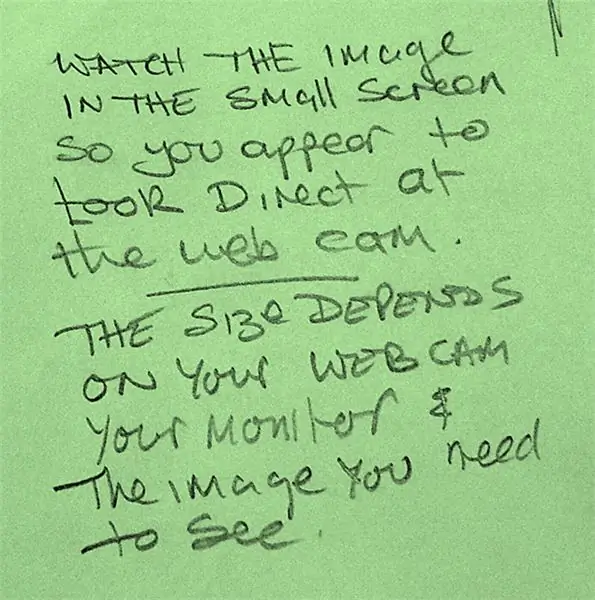 WATCH THE IMage
IN THE SMall Screen
So you appear to
look Direct at
the web cam.
THE Size DEPENDS
ON YOUR WEB CAM
Your Monitor &
The image You need
to See.